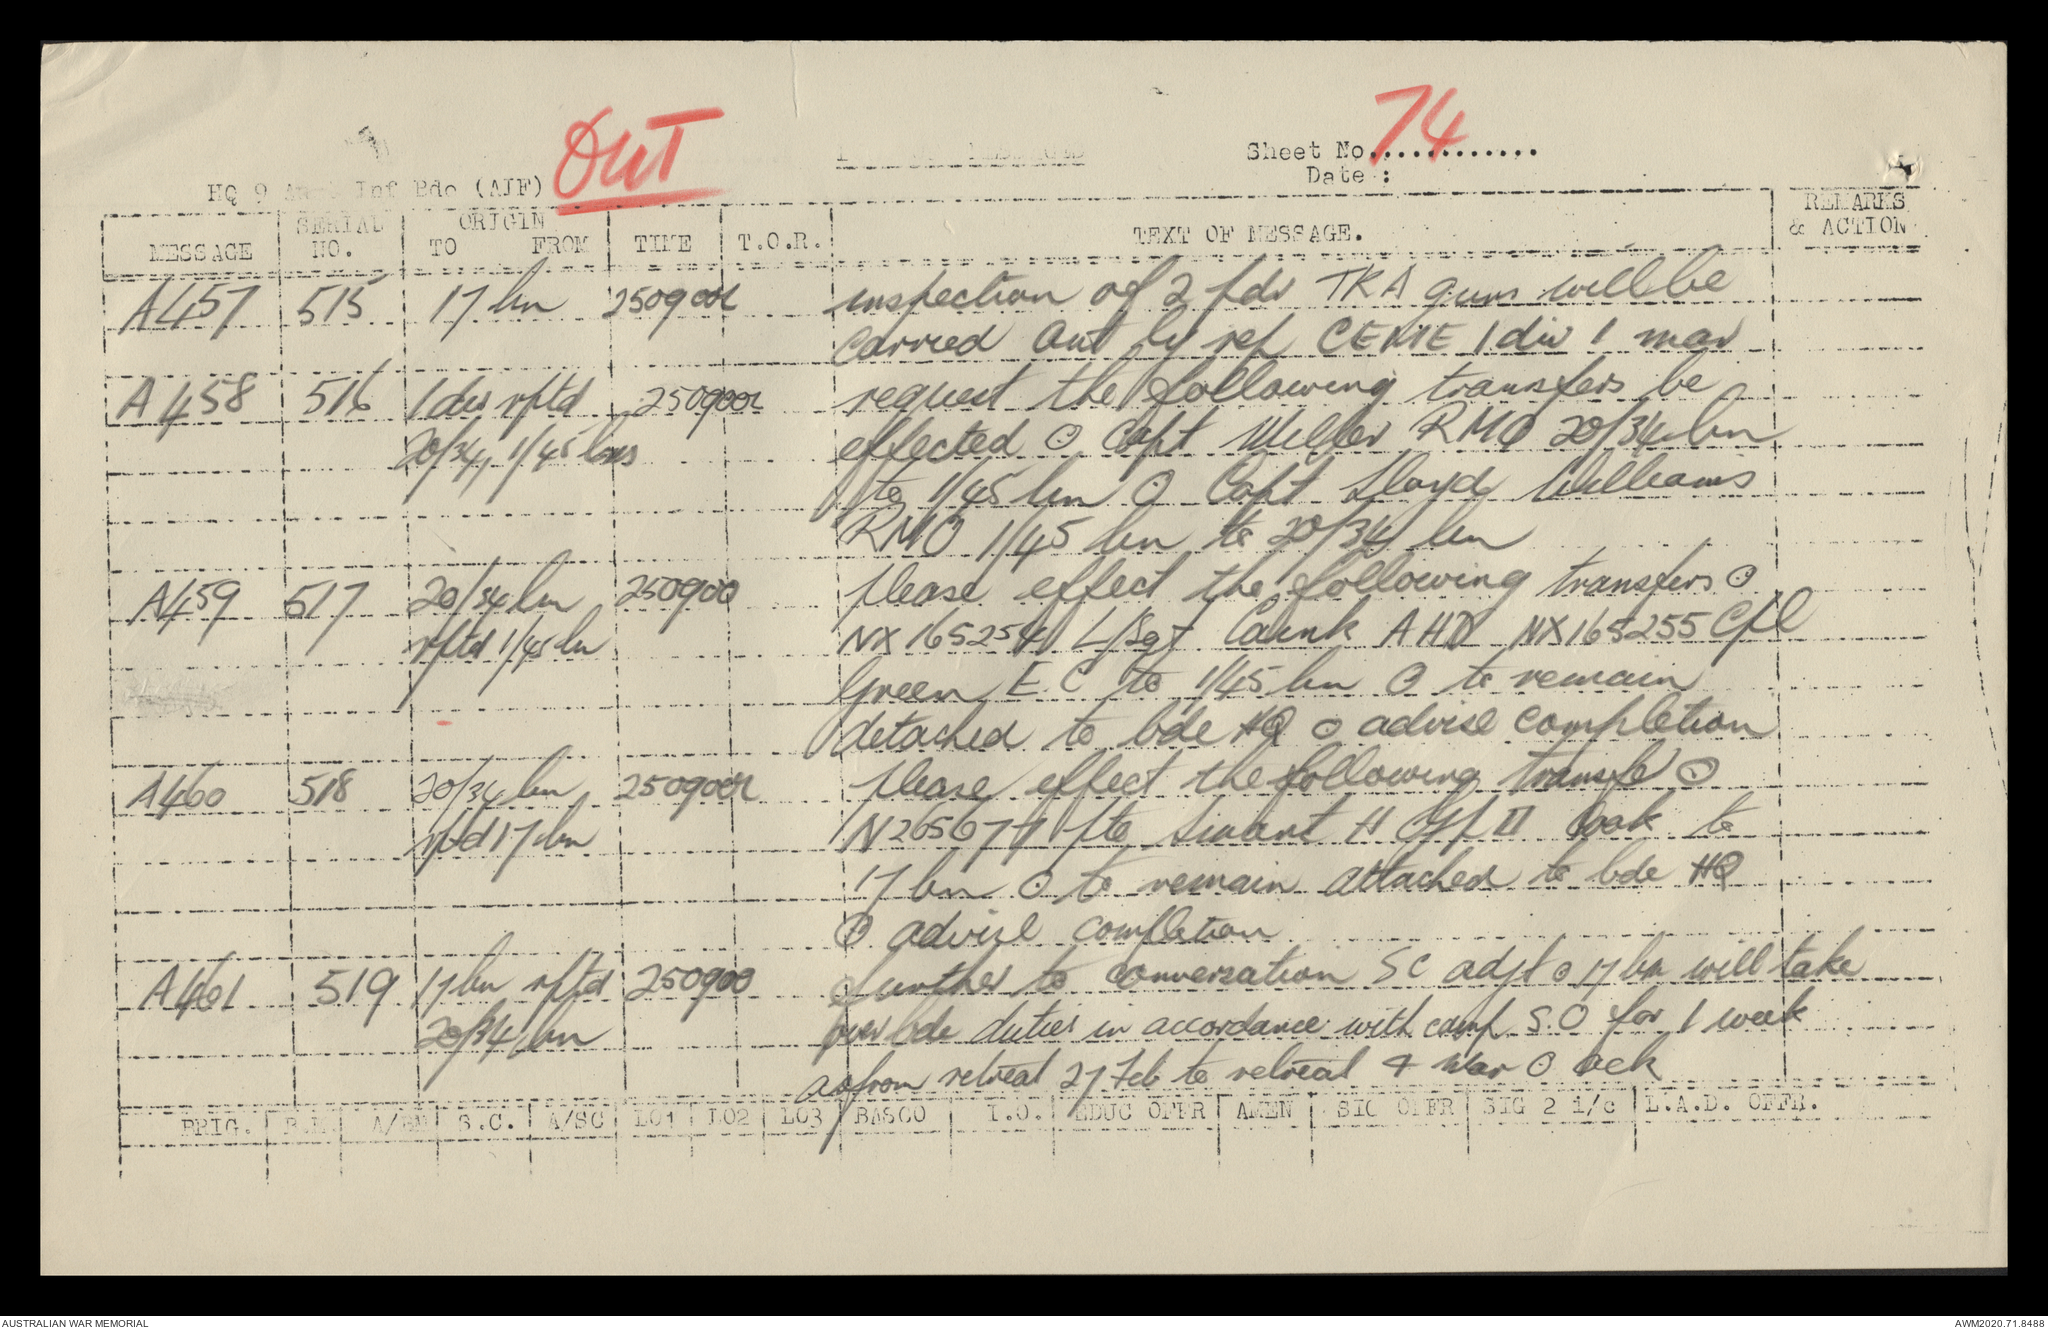 OUT
Sheet No. 74
Date :
HQ 9 Inf Bde (AIF)
MESSAGE SERIAL NO. ORIGIN TO FROM TIME T.O.R. TEXT OF MESSAGE. REMARKS & ACTION
A457 515 17 bn 250900L inspection of 2 pdr TKA guns will be
carried out by rep CEME 1 div 1 mar
A458 516 1 div rptd 250900L request the following transfers be
20/34, 1/45 bns effected ⊙ Capt Miller RMO 20/34 bn
to 1/45 bn ⊙ Capt Lloyd Williams
RMO 1/45 bn to 20/34 bn
A459 517 20/34 bn 250900 please effect the following transfers ⊙
rptd 1/45 bn NX165254 L/Sgt AHD NX165255 Cpl
Green E.C to 1/45 bn ⊙ to remain
detached to bde HQ ⊙ advise completion
A460 518 20/34 bn 250900L please effect the following transfer ⊙
rptd 17 bn Pte H Gp II Cook to
17 bn ⊙ to remain attached to bde HQ
⊙ advise completion
A461 519 17 bn rptd 250900 further to conversation SC adjt ⊙ 17 bn will take
20/34 bn over bde duties in accordance with camp S.O for 1 week
as from retreat 27 Feb to retreat 4 Mar ⊙ ack
BRIG. B.M. A/BM S.C. A/SC LO1 LO2 LO3 BASCO I.O. EDUC OFFR AMEN SIG OFFR SIG 2 i/c L.A.D. OFFR.
AUSTRALIAN WAR MEMORIAL
AWM2020.71.8488